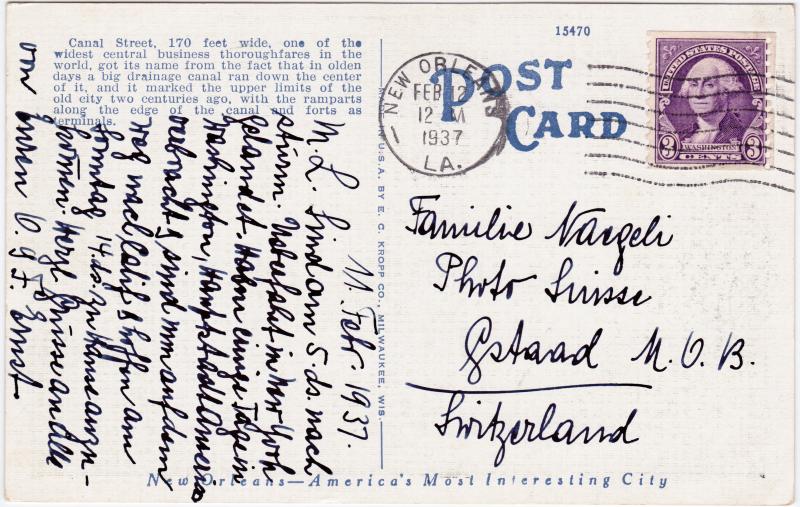 Canal Street, 170 feet wide, one of the
widest central business thoroughfares in the
world, got its name from the fact that in olden
days a big drainage canal ran down the center
of it, and it marked the upper limits of the
old city two centuries ago, with the ramparts
along the edge of the canal and forts as
terminals.
11. Febr 1937.
M. L. Sind am 5 ds. nach
stürm. Ueberfahrt in New York
gelandet. Haben einige Tage in
Washington, Hauptstadt Amerikas
verbracht & sind nun auf dem
Weg nach Calif & hoffen am
Sonntag 14. ds. zu Hause anzu-
kommen. Herzl Grüsse an Alle
von Ernst
MADE IN U.S.A. BY E. C. KROPP CO., MILWAUKEE, WIS.
15470
POST
CARD
NEW ORLEANS
FEB 12
12 M
1937
LA.
UNITED STATES POSTAGE
WASHINGTON
3 CENTS 3
Familie Naegeli
Photo Suisse
Gstaad M.O.B.
Switzerland
New Orleans—America's Most Interesting City